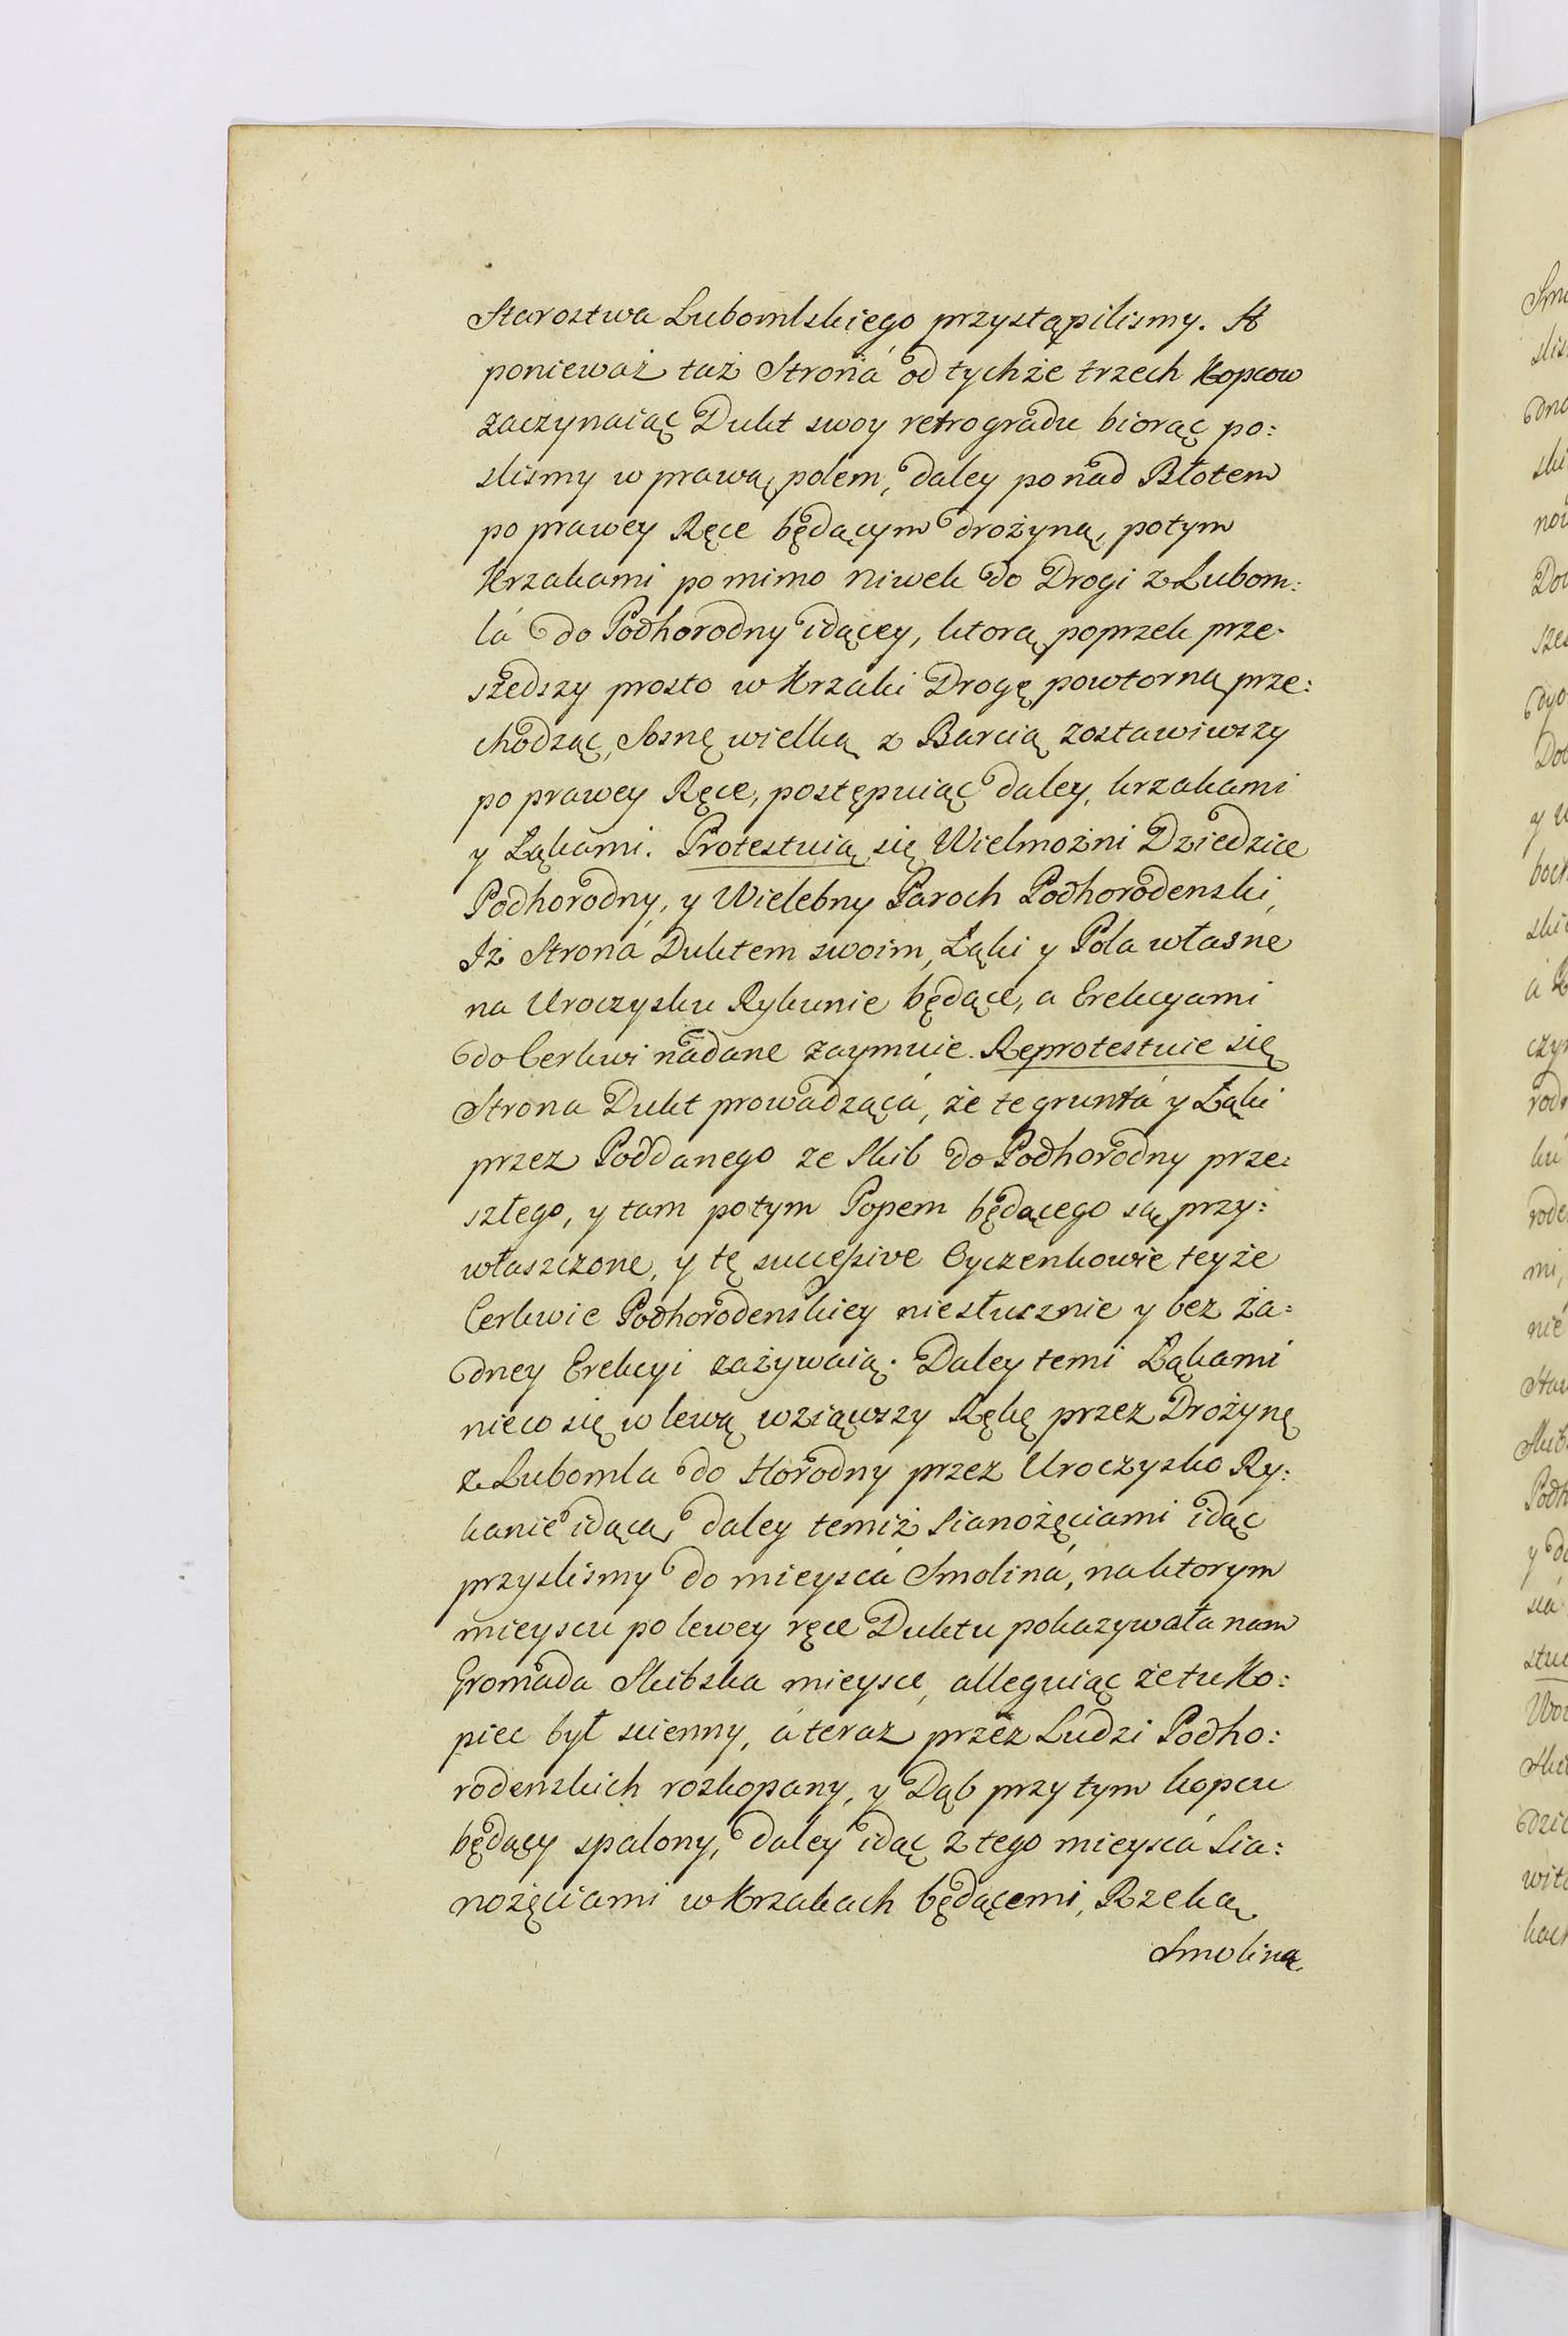 Starostwa Lubomlskiego przystąpilismy. A
ponieważ taż Stroná od tychże trzech Kopcow
zaczynaiąc Dukt swoy retrogradu biorąc po:
slismy w prawą polem, daley ponad Błotem
po prawey Ręce będącym drożyną, potym
Krzakami pomimo niwek do Drogi z Lubom:
lá do Podhorodny idącey, ktorą poprzek prze-
szedszy prosto w Krzaki Drogę powtorną prze:
chodząc, Sosnę wielką z Barcią zostawiwszy
po prawey Ręce, postępuiąc daley, krzakami
y Łąkami. Protestuią się Wielmożni Dziedzice
Podhorodny, y Wielebny Paroch Podhorodenski,
Iż Stroná Duktem swoim, Łąki y Pola własne
na Uroczysku Rykunie będące, a Erekcyami
do Cerkwi nadane zaymuie. Reprotestuie się
Strona Dukt prowadzącá, że te gruntá y Łąki
przez Poddanego ze Skib do Podhorodny prze:
szłego, y tam potym Popem będącego są przy:
właszczone, y tę successive Cyczenkowie teyże
Cerkwie Podhorodenskiey niesłusznie y bez ża:
dney Erekcyi zażywaią. Daley temi Łąkami
nieco się w lewą wziąwszy Rękę przez Drożynę
z Lubomla do Horodny przez Uroczysko Ry:
kanie idącą, daley temiż Sianożęciami idąc
przyslismy do mieyscá Smoliná, na ktorym
mieyscu po lewey ręce Duktu pokazywała nam
Gromada Skibska mieysce, alleguiąc że tu Ko:
piec był scienny, á teraz przez Ludzi Podho:
rodenskich roskopany, y Dąb przy tym kopcu
będący spalony, daley idąc z tego mieyscá Sia:
nożęciami w Krzakach będącemi, Rzeką
Smoliną